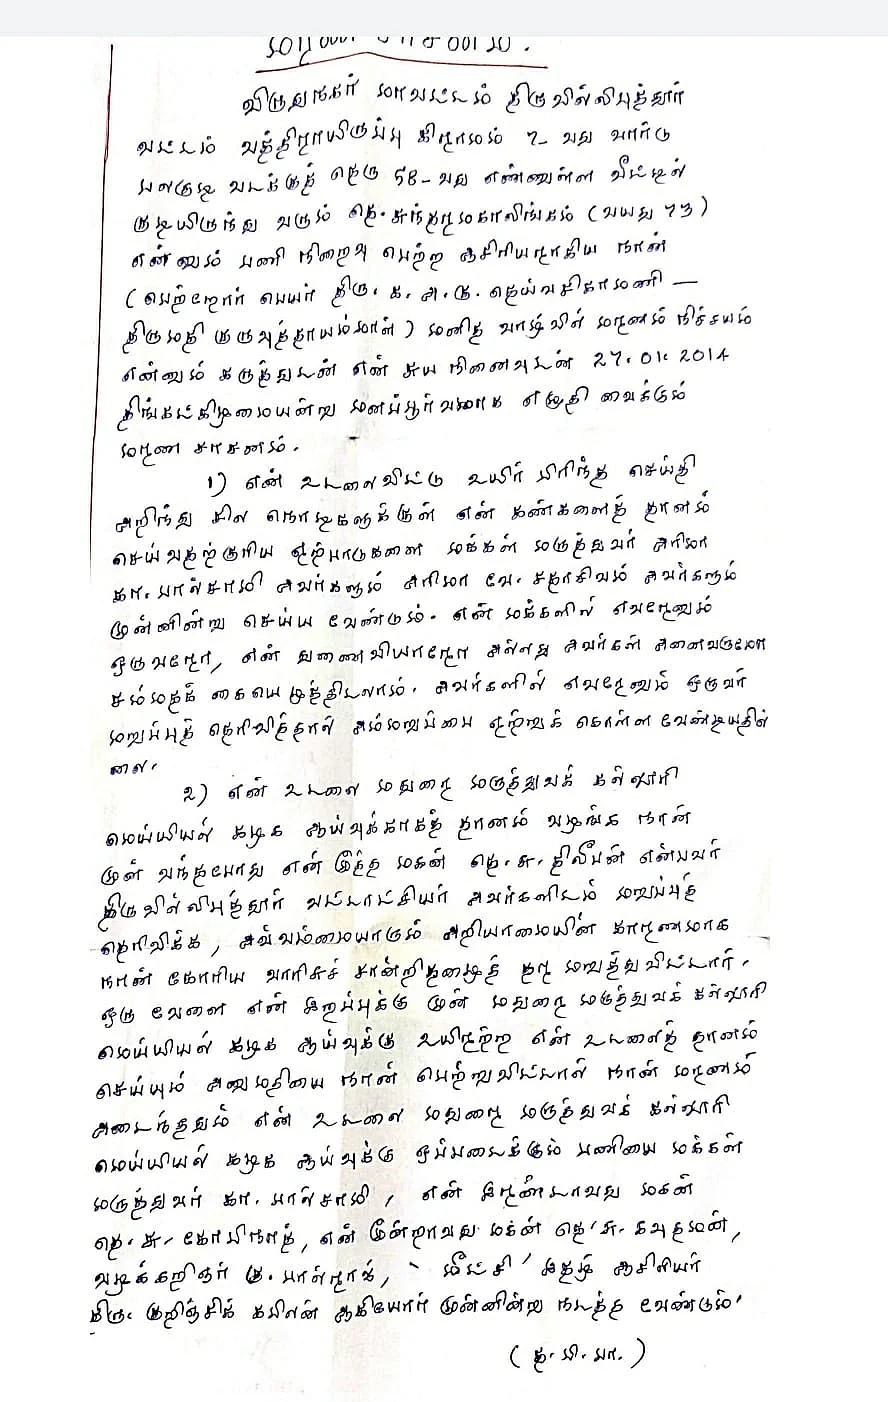 மரண சாசனம்.
விருதுநகர் மாவட்டம் திருவில்லிபுத்தூர்
வட்டம் வத்திராயிருப்பு கிராமம் 7-வது வார்டு
மறகுடி வடக்குத் தெரு 58-வது எண்ணுள்ள வீட்டில்
குடியிருந்து வரும் தெ. சுந்தரமகாலிங்கம் (வயது 73)
என்னும் பணி நிறைவு பெற்ற ஆசிரியராகிய நான்
(பெற்றோர் பெயர் திரு. க. அ. கு. தெய்வசிகாமணி —
திருமதி குருவுத்தாயம்மாள்) மனித வாழ்வில் மரணம் நிச்சயம்
என்னும் கருத்துடன் என் சுய நினைவுடன் 27.01.2014
திங்கட்கிழமையன்று மனப்பூர்வமாக எழுதி வைக்கும்
மரண சாசனம்.
1) என் உடலைவிட்டு உயிர் பிரிந்த செய்தி
அறிந்து சில நொடிகளுக்குள் என் கண்களைத் தானம்
செய்வதற்குரிய ஏற்பாடுகளை மக்கள் மருத்துவர் அரிமா
கா. பால்சாமி அவர்களும் அரிமா வே. சதாசிவம் அவர்களும்
முன்னின்று செய்ய வேண்டும். என் மக்களில் எவரேனும்
ஒருவரோ, என் துணைவியாரோ அல்லது அவர்கள் அனைவருமோ
சம்மதக் கையெழுத்திடலாம். அவர்களில் எவரேனும் ஒருவர்
மறுப்புத் தெரிவித்தால் அம்மறுப்பை ஏற்றுக் கொள்ள வேண்டியதில்
லை.
2) என் உடலை மதுரை மருத்துவக் கல்லூரி
மெய்யியல் கழக ஆய்வுக்காகத் தானம் வழங்க நான்
முன் வந்தபோது என் மூத்த மகன் தெ. சு. திலீபன் என்பவர்
திருவில்லிபுத்தூர் வட்டாட்சியர் அவர்களிடம் மறுப்புத்
தெரிவிக்க, அவ்வம்மையாரும் அறியாமையின் காரணமாக
நான் கோரிய வாரிசுச் சான்றிதழைத் தர மறுத்துவிட்டார்.
ஒரு வேளை என் இறப்புக்கு முன் மதுரை மருத்துவக் கல்லூரி
மெய்யியல் கழக ஆய்வுக்கு உயிரற்ற என் உடலைத் தானம்
செய்யும் அனுமதியை நான் பெற்றுவிட்டால் நான் மரணம்
அடைந்ததும் என் உடலை மதுரை மருத்துவக் கல்லூரி
மெய்யியல் கழக ஆய்வுக்கு ஒப்படைக்கும் பணியை மக்கள்
மருத்துவர் கா. பால்சாமி, என் இரண்டாவது மகன்
தெ. சு. கோபிநாத், என் மூன்றாவது மகன் தெ. சு. கவுதமன்,
வழக்கறிஞர் கு. பால்ராஜ், 'மீட்சி' இதழ் ஆசிரியர்
திரு. குறிஞ்சிக் கபிலன் ஆகியோர் முன்னின்று நடத்த வேண்டும்.
(த. பி. பா.)